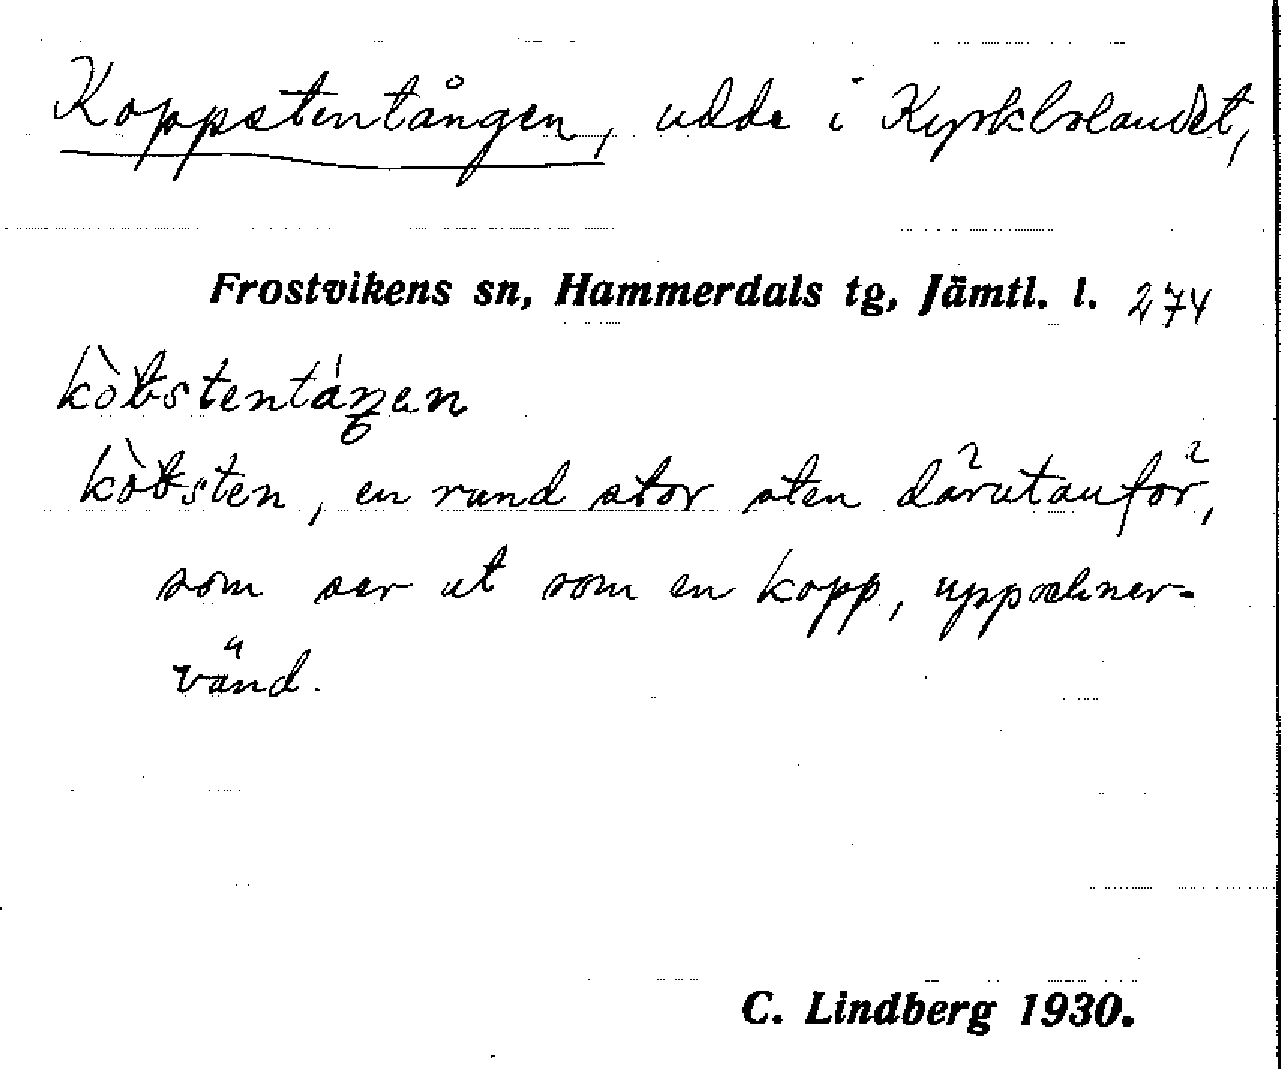 Koppstentången, udde i Kyrkbolandet,
Frostvikens sn, Hammerdals tg, Jämtl. l. 274
en rund stor sten därutanför,
som ser ut som en kopp, uppochner-
vänd.
C. Lindberg 1930.